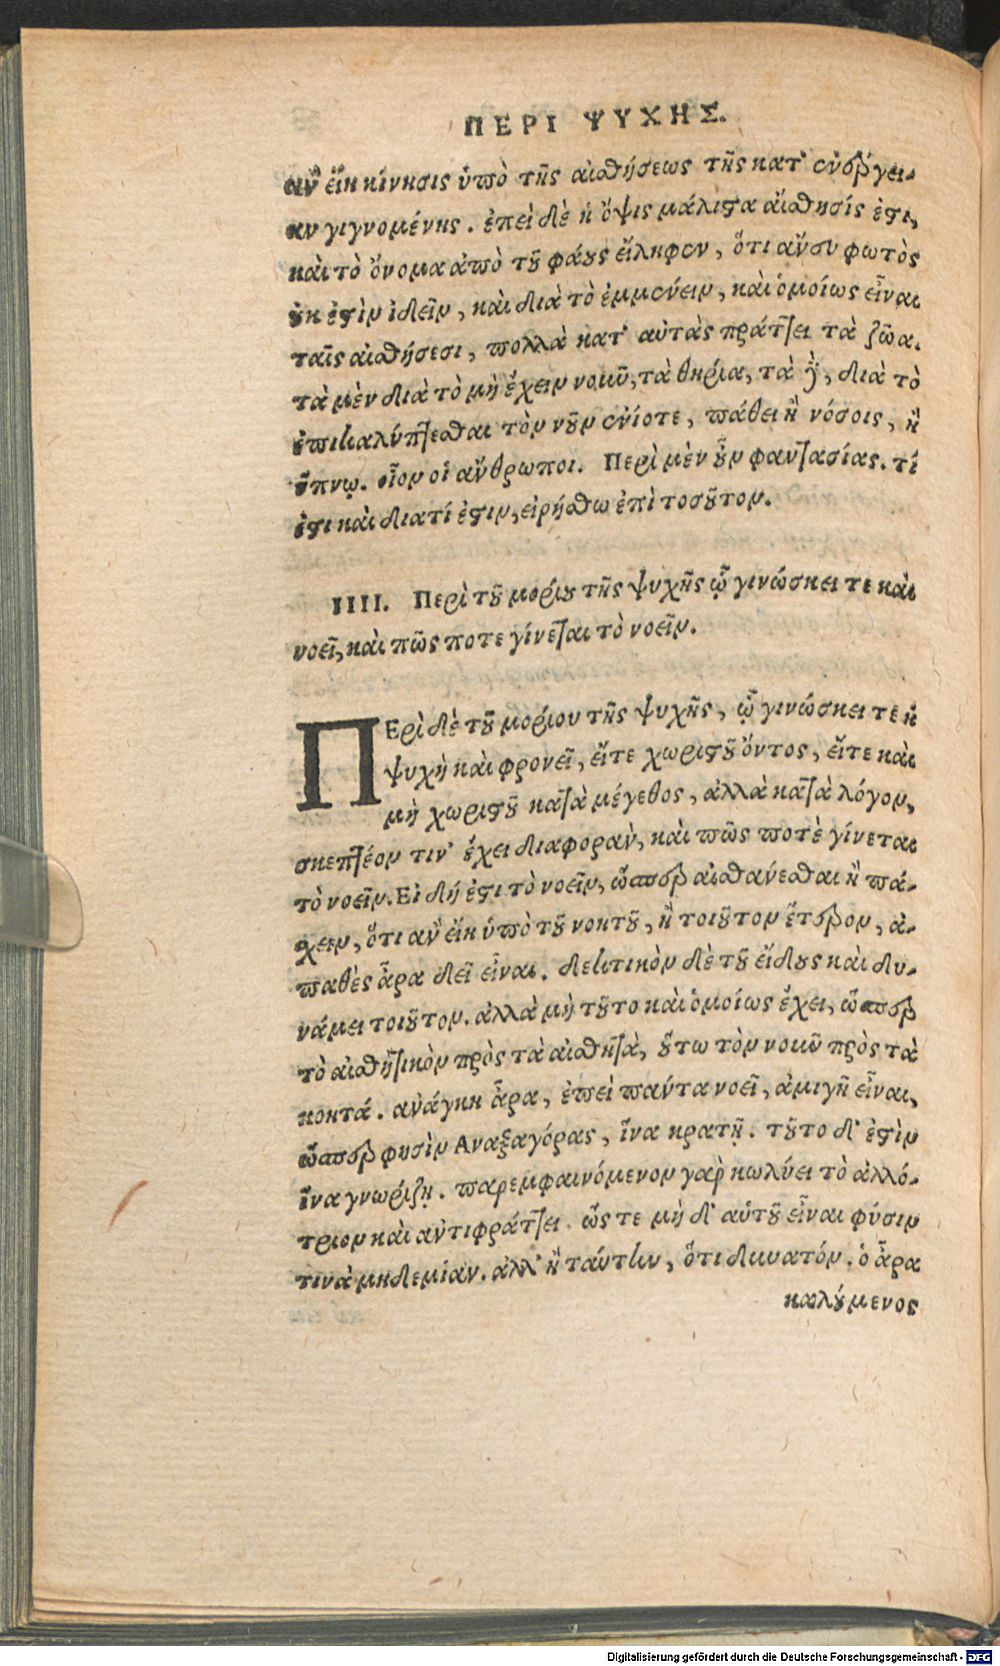 ΠΕΡΙ ΨΥΧΗΣ.
ἂν εἴη κίνησις ὑπὸ τῆς αἰσθήσεως τῆς κατ' ἐνέργει-
αν γιγνομένης. ἐπεὶ δὲ ἡ ὄψις μάλιστα αἴσθησίς ἐστι,
καὶ τὸ ὄνομα ἀπὸ τοῦ φάους εἴληφεν, ὅτι ἄνευ φωτὸς
οὐκ ἐστὶν ἰδεῖν, καὶ διὰ τὸ ἐμμένειν, καὶ ὁμοίως εἶναι
ταῖς αἰσθήσεσι, πολλὰ κατ' αὐτὰς πράττει τὰ ζῶα.
τὰ μὲν διὰ τὸ μὴ ἔχειν νοῦν, τὰ θηρία, τὰ δὲ, διὰ τὸ
ἐπικαλύπτεσθαι τὸν νοῦν ἐνίοτε, πάθει ἢ νόσοις, ἢ
ὕπνῳ. οἷον οἱ ἄνθρωποι. Περὶ μὲν οὖν φαντασίας. τί
ἐστι καὶ διατί ἐστιν, εἰρήσθω ἐπὶ τοσοῦτον.
IIII. Περὶ τοῦ μορίου τῆς ψυχῆς ᾧ γινώσκει τε καὶ
νοεῖ, καὶ πῶς ποτε γίνεται τὸ νοεῖν.
ΠΕρὶ δὲ τοῦ μορίου τῆς ψυχῆς, ᾧ γινώσκει τε ἡ
ψυχὴ καὶ φρονεῖ, εἴτε χωριστοῦ ὄντος, εἴτε καὶ
μὴ χωριστοῦ κατὰ μέγεθος, ἀλλὰ κατὰ λόγον,
σκεπτέον τίν' ἔχει διαφορὰν, καὶ πῶς ποτὲ γίνεται
τὸ νοεῖν. Εἰ δή ἐστι τὸ νοεῖν, ὥσπερ αἰσθάνεσθαι ἢ πά-
σχειν, ὅτι ἂν εἴη ὑπὸ τοῦ νοητοῦ, ἢ τοιοῦτον ἕτερον, ἀ-
παθὲς ἄρα δεῖ εἶναι. δεκτικὸν δὲ τοῦ εἴδους καὶ δυ-
νάμει τοιοῦτον. ἀλλὰ μὴ τοῦτο καὶ ὁμοίως ἔχει, ὥσπερ
τὸ αἰσθητικὸν πρὸς τὰ αἰσθητὰ, οὕτω τὸν νοῦν πρὸς τὰ
νοητά. ἀνάγκη ἄρα, ἐπεὶ πάντα νοεῖ, ἀμιγῆ εἶναι,
ὥσπερ φησὶν Αναξαγόρας, ἵνα κρατῇ. τοῦτο δ' ἐστὶν
ἵνα γνωρίζῃ. παρεμφαινόμενον γὰρ κωλύει τὸ ἀλλό-
τριον καὶ ἀντιφράττει. ὥς τε μὴ δ' αὐτοῦ εἶναι φύσιν
τινὰ μηδεμίαν. ἀλλ' ἢ ταύτην, ὅτι δυνατόν. ὁ ἄρα
καλούμενος
Digitalisierung gefördert durch die Deutsche Forschungsgemeinschaft - DFG